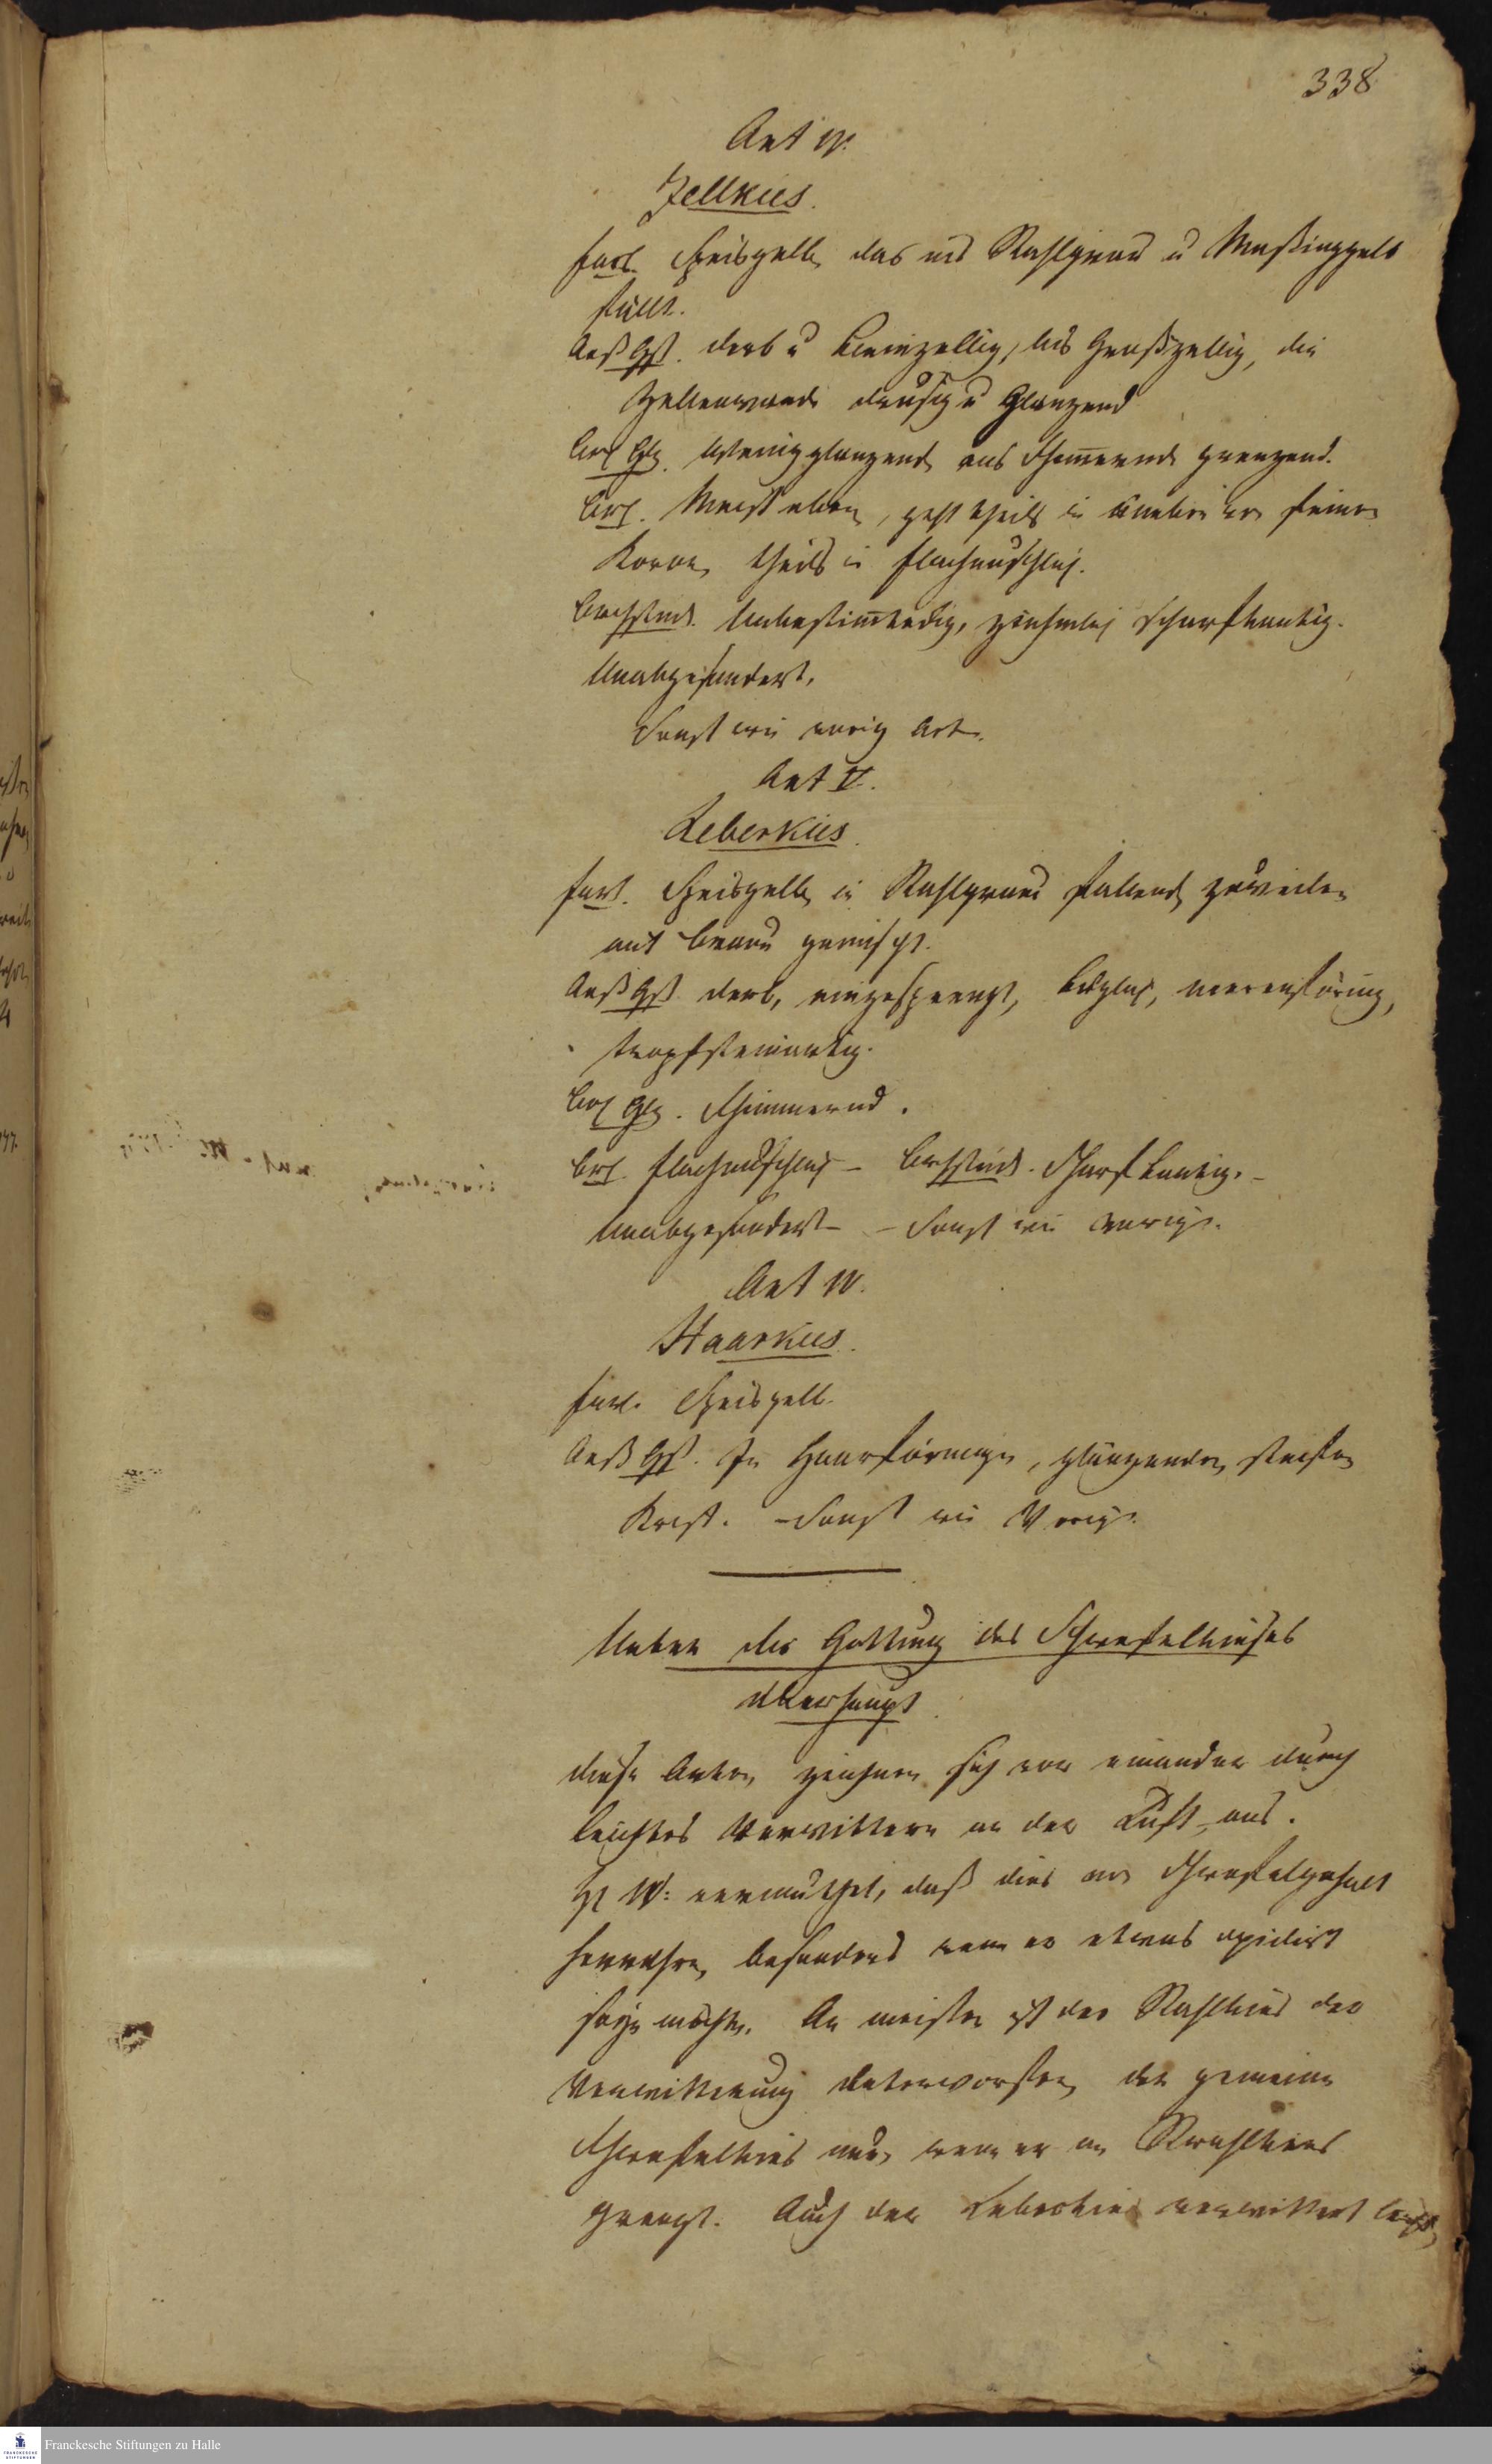 338
Art IV.
Zellkies.
Farb. Speisgelb, das ins Stahlgrau u Meßinggelb
fällt.
Aeß Gst. derb u kleinzellig, bis Großzellig, die
Zellenwände drusig u Glänzend
Brch Glz. Wenigglänzend ans Schimernde grenzend.
Brch. Meist eben, geht theils in uneben von feinen
Korne, theils in flachmuschlich.
Bruchstück. Unbestimteckig, ziehmlich scharfkantig.
Unabgesondert.
Sonst wie vorig Art.
Art V.
Leberkies.
Farb. Speisgelb, in Stahlgrau fallend, zuweilen
mit braun gemischt.
Aeß Gst. derb, eingesprengt, kuglich, nierenförmig,
tropfsteinartig.
Brch Glz. Schimmernd.
Brch. flachmuschlich – Bruchstück. Scharfkantig. –
Unabgesondert – – Sonst wie vorige.
Art VI.
Haarkies.
Farb. Speisgelb.
Aeß Gst. In Haarförmigen, glänzenden,
Krist. – Sonst wie Vorige.
Ueber die Gattung des Schwefelkieses
überhaupt.
diese Arten zeichnen sich vor einander durch
leichtes Verwittern an der Luft aus.
H W: vermuthet, daß dies vom Schwefelgehalt
herrühre, besonders wenn er etwas oxidirt
seyn möchte. Am meisten ist der Strahlkies der
Verwitterung unterworfen, der gemeine
Schwefelkies nur, wenn er an Strahlkies
grenzt. Auch der Leberkies verwittert leicht,
Franckesche Stiftungen zu Halle